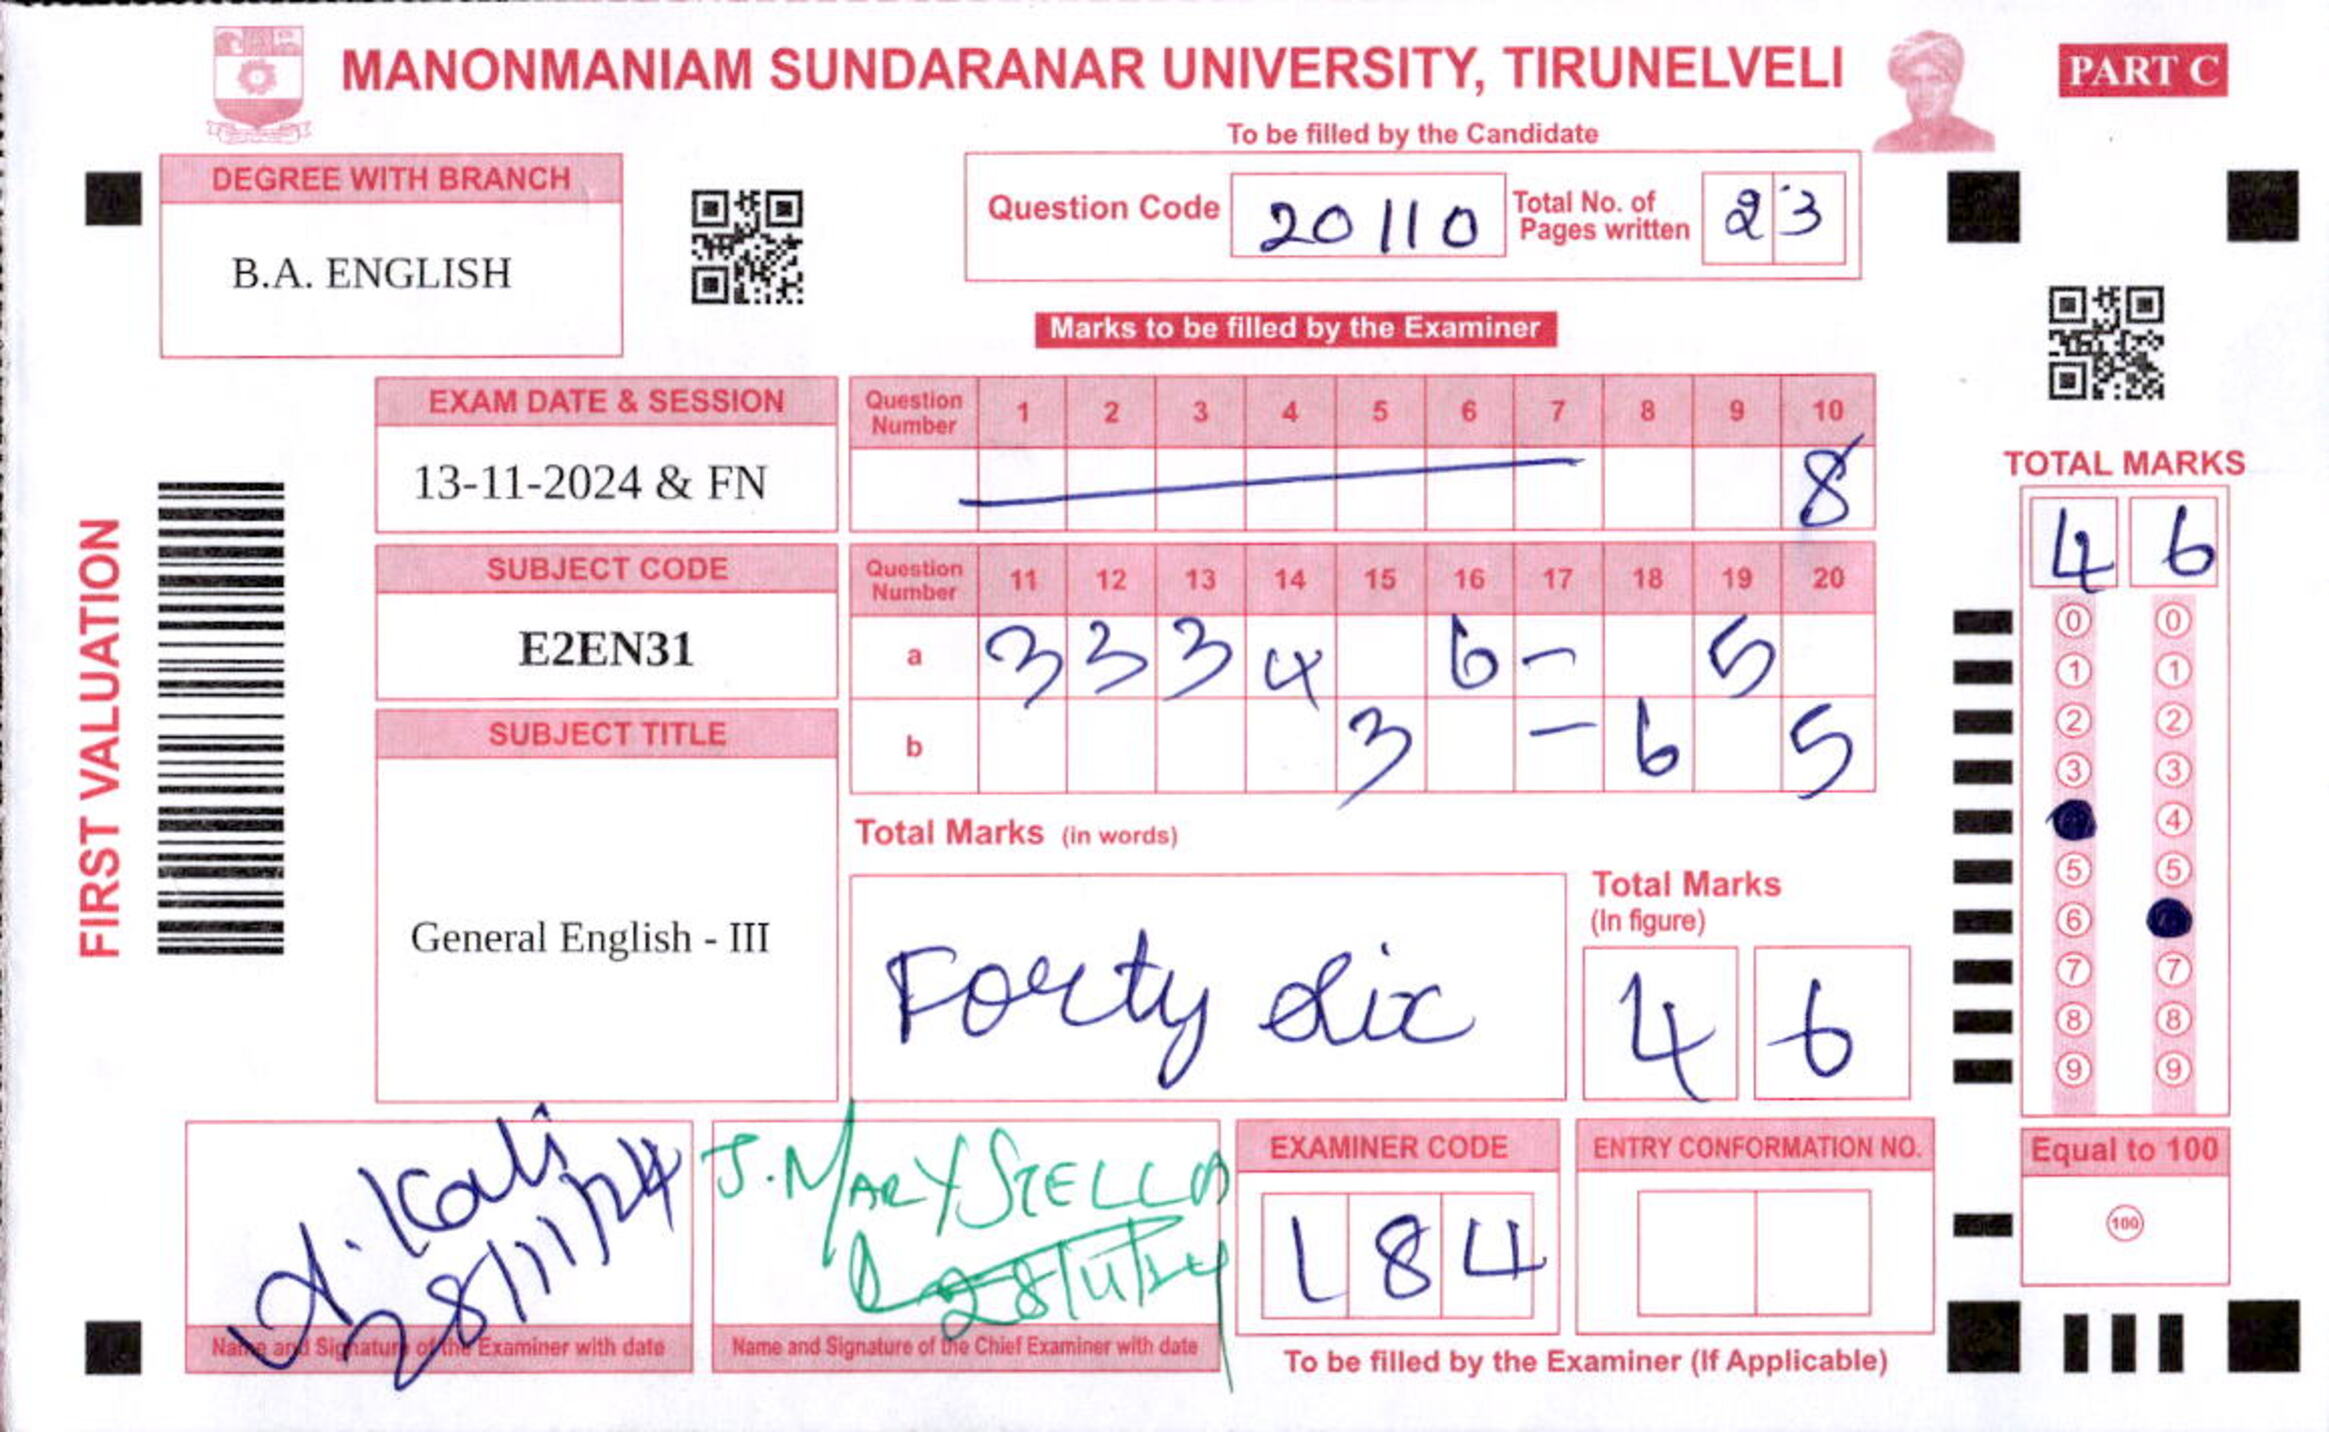 MANONMANIAM SUNDARANAR UNIVERSITY, TIRUNELVELI
PART C
To be filled by the Candidate
DEGREE WITH BRANCH
B.A. ENGLISH
Question Code 20110 Total No. of Pages written 23
Marks to be filled by the Examiner
EXAM DATE & SESSION
13-11-2024 & FN
Question Number 1 2 3 4 5 6 7 8 9 10
8
SUBJECT CODE
E2EN31
Question Number 11 12 13 14 15 16 17 18 19 20
a 3 3 3 4 6 - 5
b 3 - 6 5
SUBJECT TITLE
General English - III
Total Marks (in words)
Forty six
Total Marks
(In figure)
4 6
FIRST VALUATION
TOTAL MARKS
4 6
0 0
1 1
2 2
3 3
4
5 5
6
7 7
8 8
9 9
Equal to 100
100
28/11/24
Name and Signature of the Examiner with date
J. MARY STELLA
28/11/24
Name and Signature of the Chief Examiner with date
EXAMINER CODE
1 8 4
ENTRY CONFORMATION NO.
To be filled by the Examiner (If Applicable)